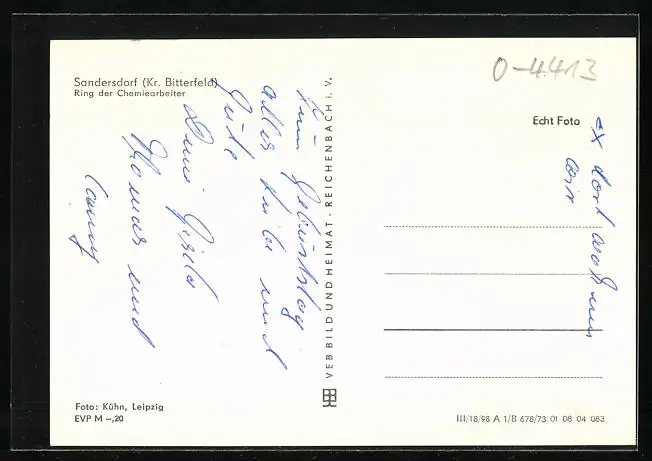 Sandersdorf (Kr. Bitterfeld)
Ring der Chemiearbeiter
Zum Geburtstag
alles Liebe und
Gute
Deine Gisela
Thomas und
Conny
VEB BILD UND HEIMAT · REICHENBACH i. V.
0-4413
Echt Foto
x dort wohnen
wir
Foto: Kühn, Leipzig
EVP M –,20
III/18/98 A 1/B 678/73 01 08 04 083